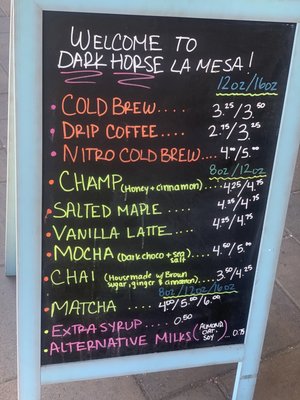 WELCOME TO
DARK HORSE LA MESA!
12oz/16oz
COLD BREW.... 3.25/3.50
DRIP COFFEE.... 2.75/3.25
NITRO COLD BREW.... 4.00/5.00
8oz/12oz
CHAMP (Honey + cinnamon).... 4.25/4.75
SALTED MAPLE .... 4.25/4.75
VANILLA LATTE.... 4.25/4.75
MOCHA (Dark choco + sea salt) .... 4.50/5.00
CHAI (Housemade w/ Brown sugar, ginger & cinnamon).... 3.50/4.25
8oz/12oz/16oz
MATCHA .... 4.00/5.00/6.00
EXTRA SYRUP..... 0.50
ALTERNATIVE MILKS (ALMOND OAT, SOY).. 0.75